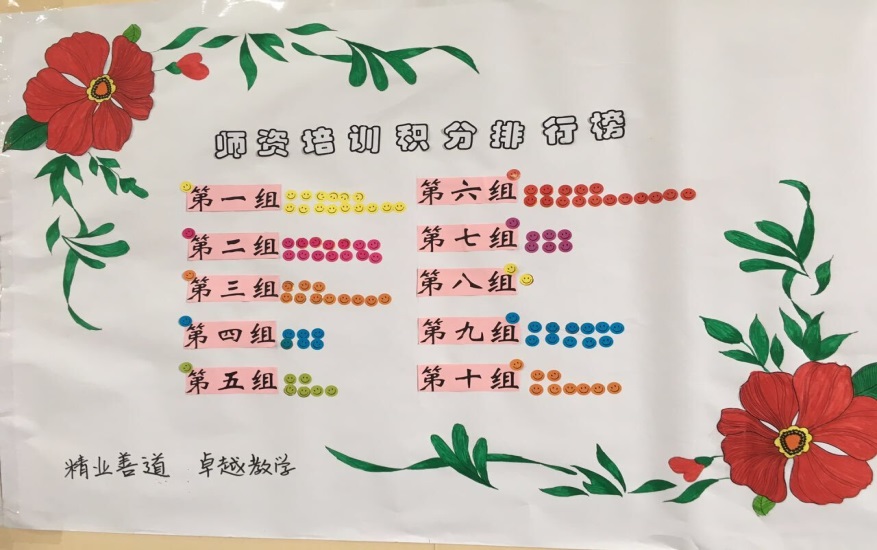 师资培训积分排行榜
第一组
第二组
第三组
第四组
第五组
第六组
第七组
第八组
第九组
第十组
精业善道 卓越教学